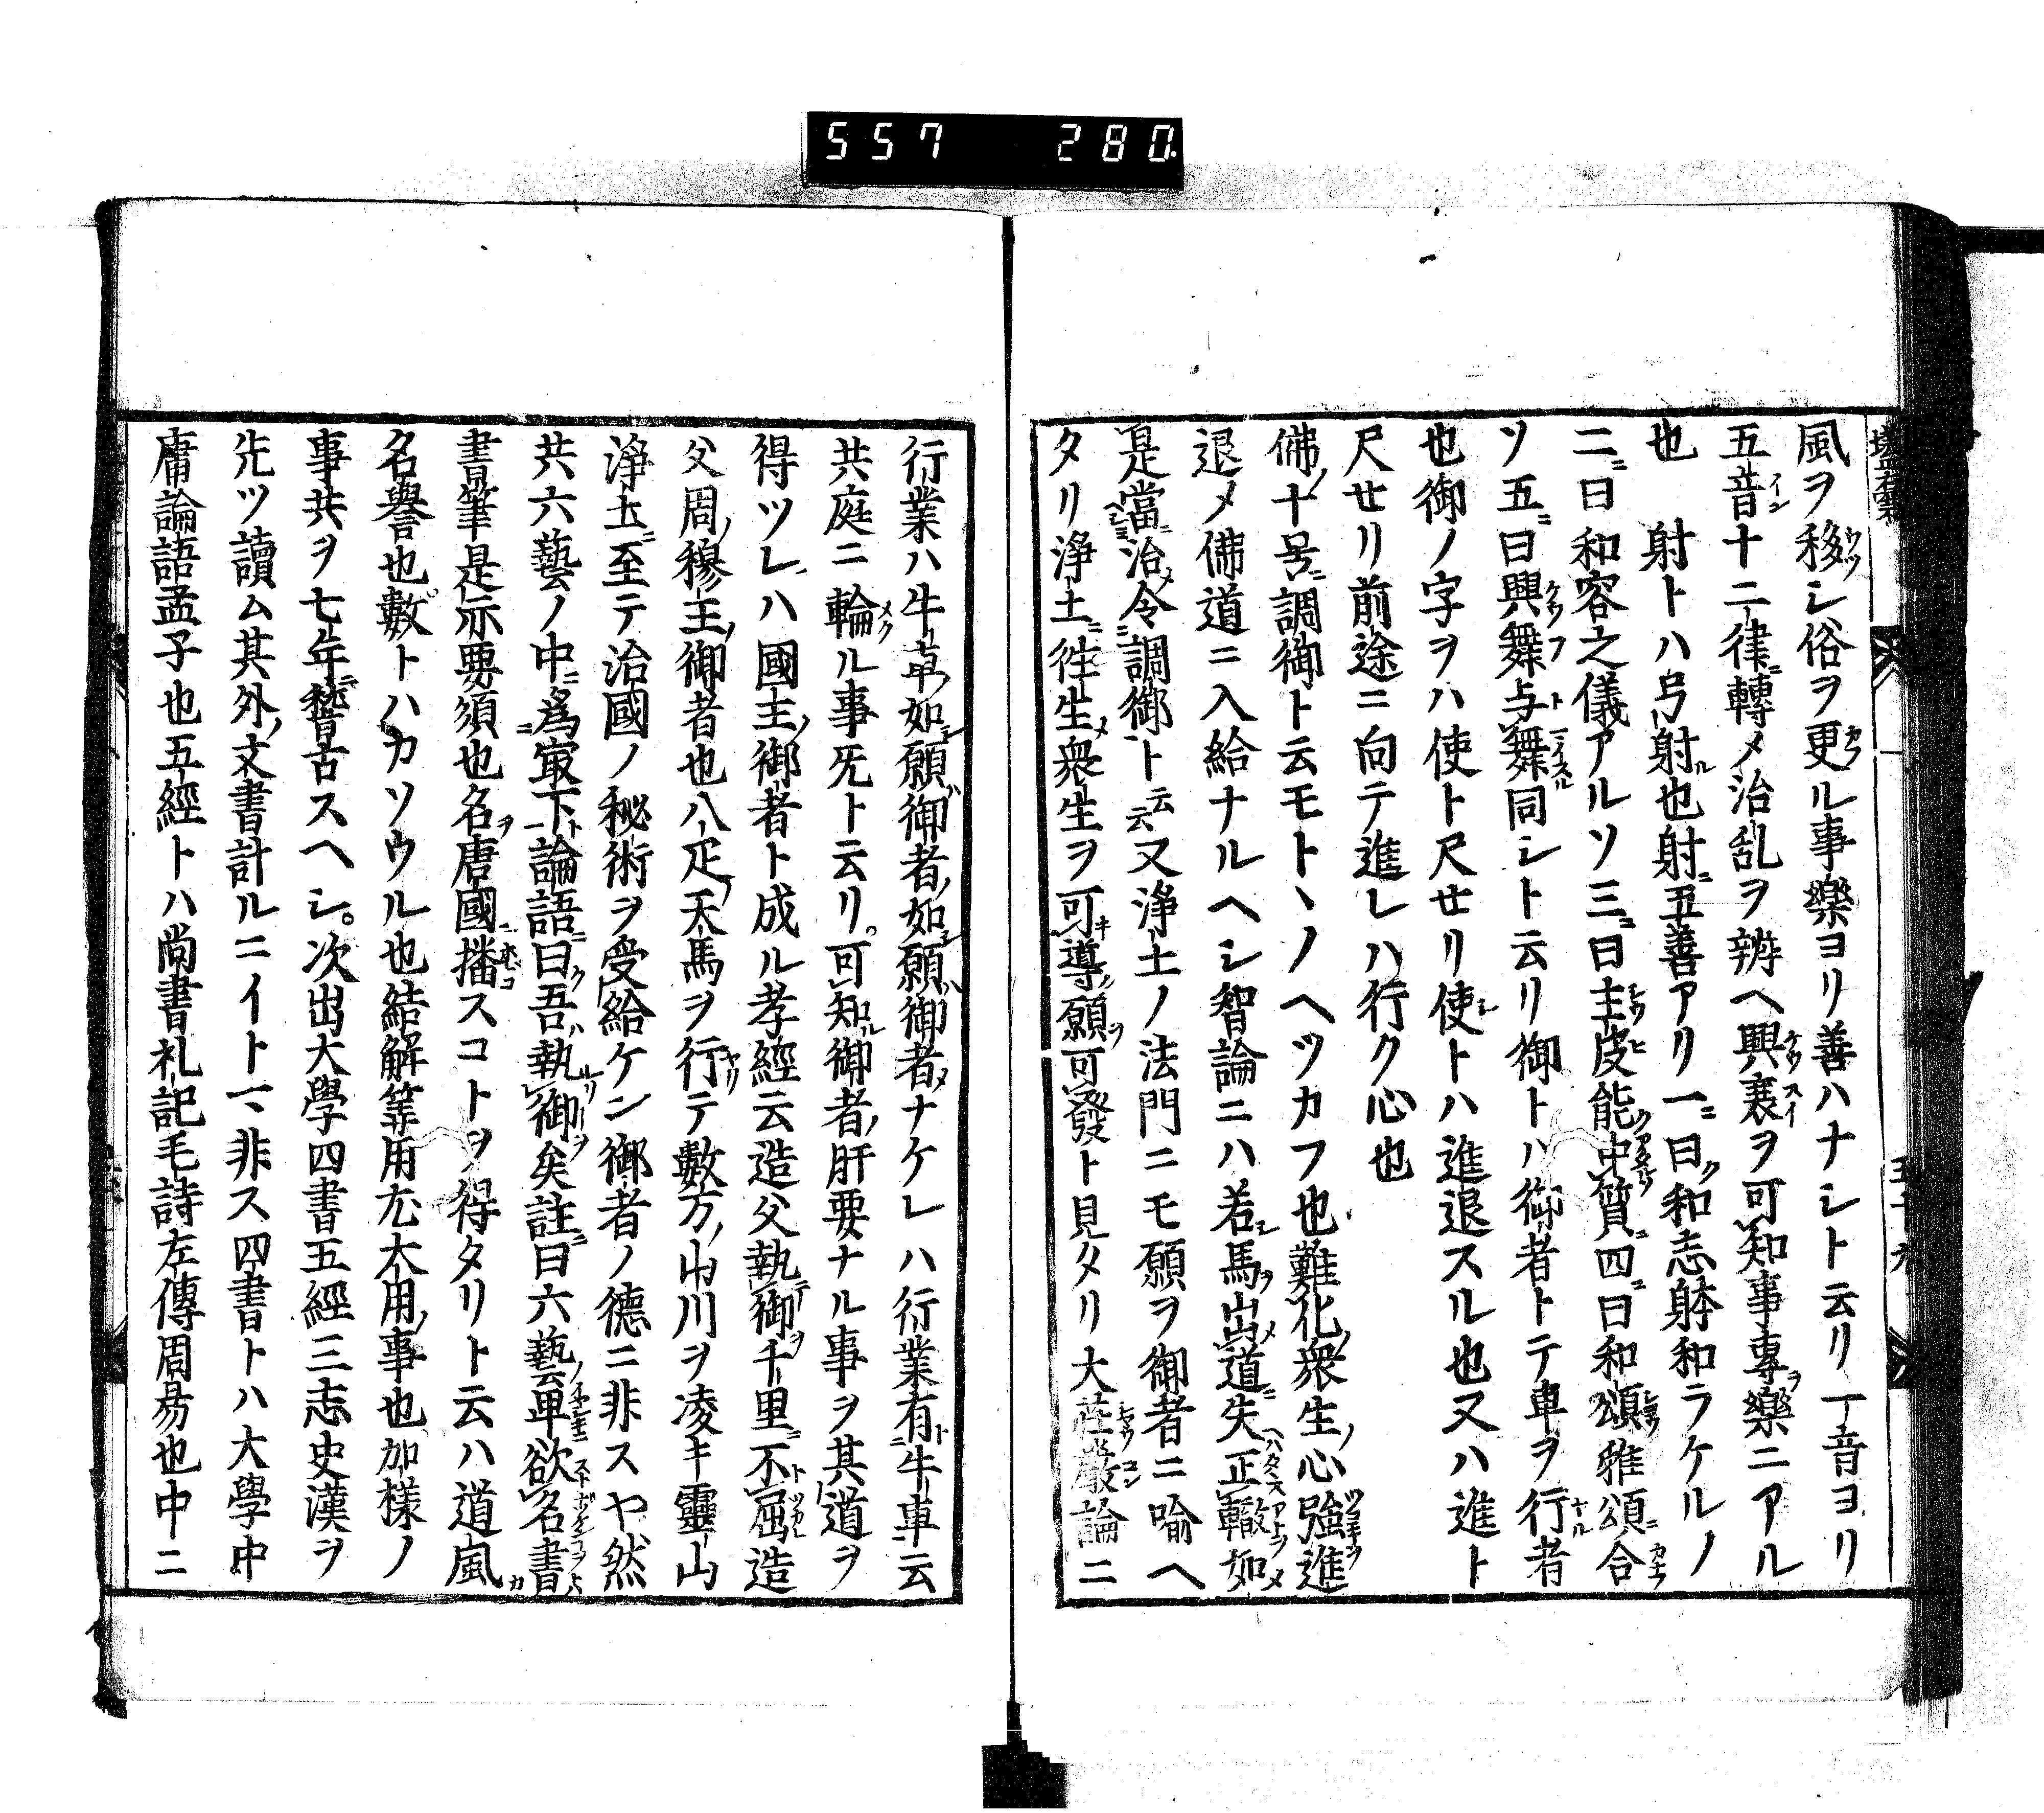 557 280
風ヲ移シ俗ヲ更ル事樂ヨリ善ハナシト云リ一音ヨリ
五音十二律轉メ治乱ヲ辨ヘ興衰ヲ可知事專樂ニアル
也 射トハ弓射也射五善アリ一曰和志躰和ラケルノ
二曰和容之儀アルソ三曰主皮能中質四曰和頌雅頌合
ソ五曰興舞与舞同シト云リ御トハ御者トテ車ヲ行者
也御ノ字ヲハ使ト尺せリ使トハ進退スル也又ハ進ト
尺せリ前途ニ向テ進レハ行ク心也
佛十号調御ト云モトヽノヘツカフ也難化衆生心強進
退メ佛道ニ入給ナルヘシ智論ニハ若馬出道失正轍如
是當治令調御ト云云又浄土ノ法門ニモ願ヲ御者ニ喩ヘ
タリ浄土往生衆生ヲ可導願可發ト見タリ大莊嚴論ニ
行業ハ牛車如願御者如願御者ナケレハ行業有牛車云
共庭ニ輪ル事旡ト云リ。可知御者肝要ナル事ヲ其道ヲ
得ツレハ國主御者ト成ル孝經云造父執御千里不屈造
父周穆王御者也八疋天馬ヲ行テ數万山川ヲ凌キ靈山
浄土至テ治國ノ秘術ヲ受給ケン御者ノ德ニ非スヤ然
共六藝ノ中爲冣下論語曰吾執御矣註曰六藝卑欲名書
書筆是亦要須也名唐國播スコトヲ得タリト云ハ道風
名譽也數トハカソウル也結解等用尤大用事也加樣ノ
事共ヲ七年稽古スヘシ。次出大學四書五經三志史漢ヲ
先ツ讀ム其外文書計ルニイトマ非ス四書トハ大學中
庸論語孟子也五經トハ尚書礼記毛詩左傳周易也中ニ